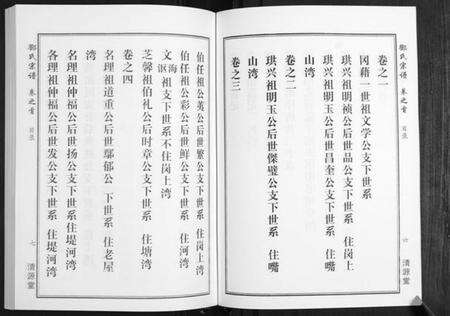 鄭氏宗谱 卷之首 目录
卷之一
冈藉一世祖文学公支下世系
珙兴祖明祯公后世品公支下世系 住岗上
珙兴祖明玉公后世昌奎公支下世系 住嘴
山湾
卷之二
珙兴祖明玉公后世傑璧公支下世系 住嘴
山湾
卷之三
六 清源堂
伯任祖公英公后世繁公支下世系 住岗上湾
伯任祖公彩公后世鲜公支下世系 住河湾
文海
沤祖支下世系不住岗上湾
芝馨祖伯礼公后时章公支下世系 住塘湾
卷之四
名理祖道重公后世鄢郁公 下世系 住老屋
湾
名理祖仲福公后世扬公支下世系 住堤河湾
各理祖仲福公后世发公支下世系 住堤河湾
鄭氏宗谱 卷之首 目录
七 清源堂